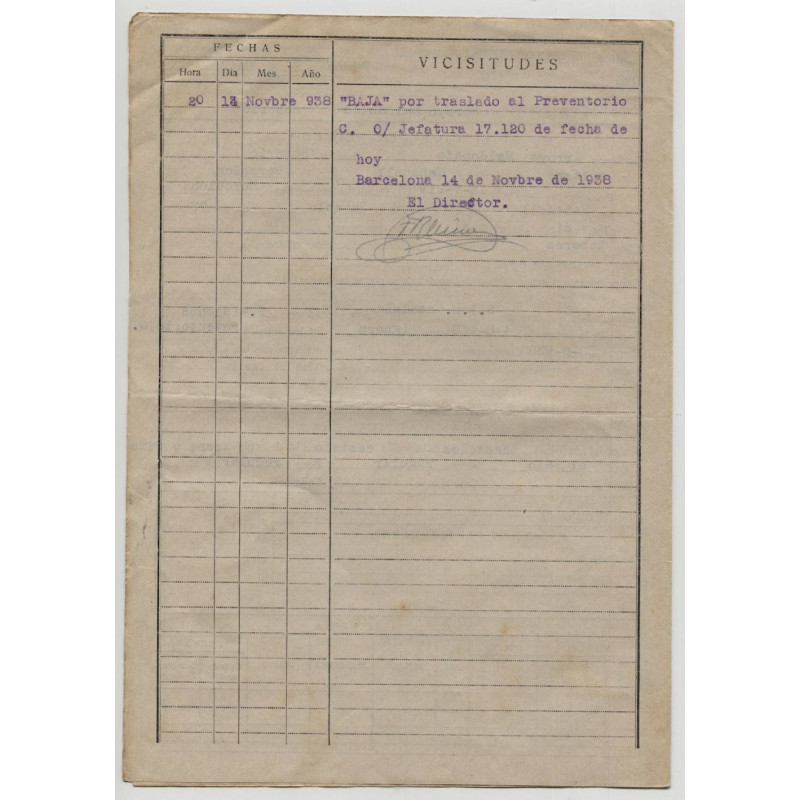 FECHAS
VICISITUDES
Hora Día Mes Año
20 14 Novbre 938 "BAJA" por traslado al Preventorio
C. O/ Jefatura 17.120 de fecha de
hoy
Barcelona 14 de Novbre de 1938
El Director.